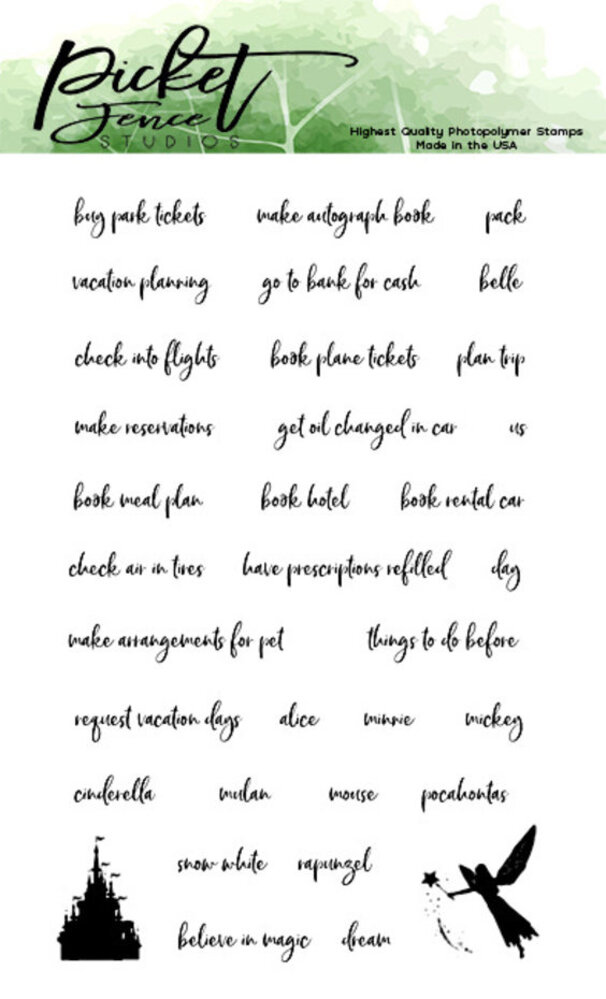 Picket
Fence
STUDIOS
Highest Quality Photopolymer Stamps
Made in the USA
buy park tickets make autograph book pack
vacation planning go to bank for cash belle
check into flights book plane tickets plan trip
make reservations get oil changed in car us
book meal plan book hotel book rental car
check air in tires have prescriptions refilled day
make arrangements for pet things to do before
request vacation days alice minnie mickey
cinderella mulan mouse pocahontas
snow white rapunzel
believe in magic dream